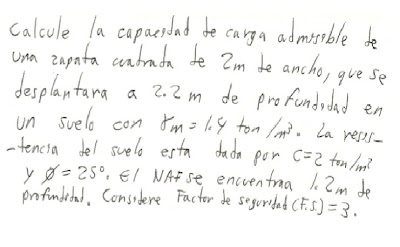 Calcule la capacidad de carga admisible de
una zapata cuadrada de 2m de ancho, que se
desplantara a 2.2 m de profundidad en
un suelo con γm = 1.4 ton/m³. La resis-
-tencia del suelo esta dada por C=2 ton/m²
y Ø = 25°. El NAF se encuentra 1.2m de
profundidad. Considere Factor de seguridad (F.S) = 3.